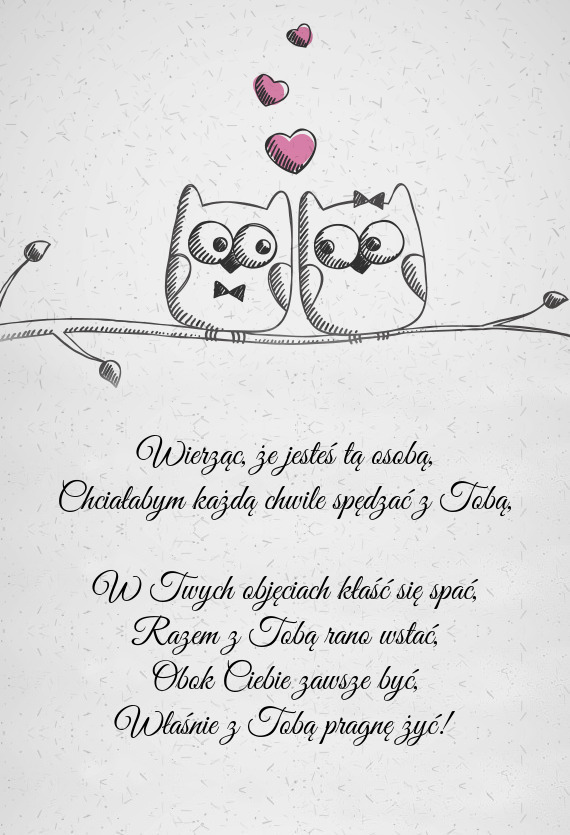 Wierząc, że jesteś tą osobą,
Chciałabym każdą chwile spędzać z Tobą,
W Twych objęciach kłaść się spać,
Razem z Tobą rano wstać,
Obok Ciebie zawsze być,
Właśnie z Tobą pragnę żyć!